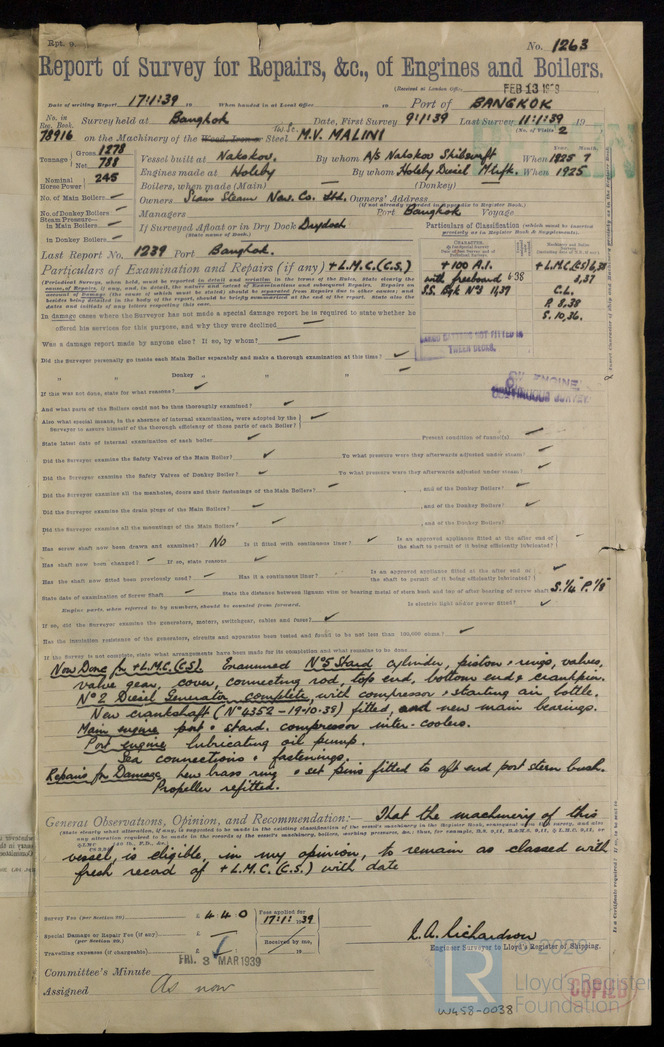 Rpt. 9.
No. 1263
Report of Survey for Repairs, &c., of Engines and Boilers.
(Received at London Office
FEB 13 1939
Date of writing Report 17:1:39 19 When handed in at Local Office 19 Port of BANGKOK
No. in Reg. Book. Survey held at Bangkok Date, First Survey 9:1:39 Last Survey 11:1:39 19
(No. of Visits 2
78916 on the Machinery of the Wood, Iron or Steel Tw. Sc. M.V. MALINI
Tonnage Gross 1278 Net 788
Vessel built at Nakskov. By whom A/S Nakskov Skibsværft When 1925 7
Year. Month.
Nominal Horse Power 245 Engines made at Holeby By whom Holeby Diesel When 1925
No. of Main Boilers Boilers, when made (Main) (Donkey)
No. of Donkey Boilers Owners Siam Steam Nav. Co. Ltd. Owners' Address
(if not already recorded in Appendix to Register Book.)
Steam Pressure in Main Boilers Managers Port Bangkok Voyage
in Donkey Boilers If Surveyed Afloat or in Dry Dock Drydock
(State name of Dock.)
Particulars of Classification (which must be inserted precisely as in Register Book & Supplements).
Last Report No. 1239 Port Bangkok.
Particulars of Examination and Repairs (if any) + L.M.C. (C.S.)
+ 100 A.1.
with freeboard 6.38
S.S. Bgk No 3 11,39
+ L.M.C. (C.S) 6,38
C.L.
S. 10,36.
CARGO BATTENS NOT FITTED IN
TWEEN DECKS.
OIL ENGINE
CONTINUOUS SURVEY
In damage cases where the Surveyor has not made a special damage report he is required to state whether he
offered his services for this purpose, and why they were declined
Was a damage report made by anyone else? If so, by whom?
Did the Surveyor personally go inside each Main Boiler separately and make a thorough examination at this time?
" " Donkey " " "
If this was not done, state for what reasons?
And what parts of the Boilers could not be thoroughly examined?
Also what special means, in the absence of internal examination, were adopted by the
Surveyor to assure himself of the thorough efficiency of those parts of each Boiler?
State latest date of internal examination of each boiler Present condition of funnel(s)
Did the Surveyor examine the Safety Valves of the Main Boilers? To what pressure were they afterwards adjusted under steam?
Did the Surveyor examine the Safety Valves of Donkey Boiler? To what pressure were they afterwards adjusted under steam?
Did the Surveyor examine all the manholes, doors and their fastenings of the Main Boilers? , and of the Donkey Boilers?
Did the Surveyor examine the drain plugs of the Main Boilers? , and of the Donkey Boilers?
Did the Surveyor examine all the mountings of the Main Boilers? , and of the Donkey Boilers?
Has screw shaft now been drawn and examined? NO Is it fitted with continuous liner? Is an approved appliance fitted at the after end of
the shaft to permit of it being efficiently lubricated?
Has shaft now been changed? If so, state reasons
Has the shaft now fitted been previously used? Has it a continuous liner? Is an approved appliance fitted at the after end of
the shaft to permit of it being efficiently lubricated?
State date of examination of Screw Shaft State the distance between lignum vitæ or bearing metal of stern bush and top of after bearing of screw shaft S. 1/16 P. 1/8
Engine parts, when referred to by numbers, should be counted from forward. Is electric light and/or power fitted?
If so, did the Surveyor examine the generators, motors, switchgear, cables and fuses?
Has the insulation resistance of the generators, circuits and apparatus been tested and found to be not less than 100,000 ohms?
If the Survey is not complete, state what arrangements have been made for its completion and what remains to be done
Now Done for + L.M.C. (C.S). Examined No 5 Starbd cylinder, piston & rings, valves,
valve gear, cover, connecting rod, top end, bottom end & crankpin.
No 2 Diesel Generator complete, with compressor & starting air bottle.
New crankshaft (No 4352 - 19.10.38) fitted, and new main bearings.
Main engine port & starbd. compressor inter-coolers.
Port engine lubricating oil pump.
Sea connections & fastenings.
Repairs for Damage, new brass ring & set pins fitted to aft end port stern bush.
Propeller refitted.
General Observations, Opinion, and Recommendation:— That the machinery of this
vessel, is eligible, in my opinion, to remain as classed with
fresh record of + L.M.C. (C.S.) with date
Survey Fee (per Section 29) £ 4 4 0 Fees applied for 17:1: 1939
Special Damage or Repair Fee (if any) £
(per Section 29.)
Received by me,
Travelling expenses (if chargeable) £ 19
L.A. Richardson
Engineer Surveyor to Lloyd's Register of Shipping.
FRI. 3 MAR 1939
Committee's Minute
Assigned As now
COPIED
© 2020
LR
Lloyd's Register
Foundation
W458-0038